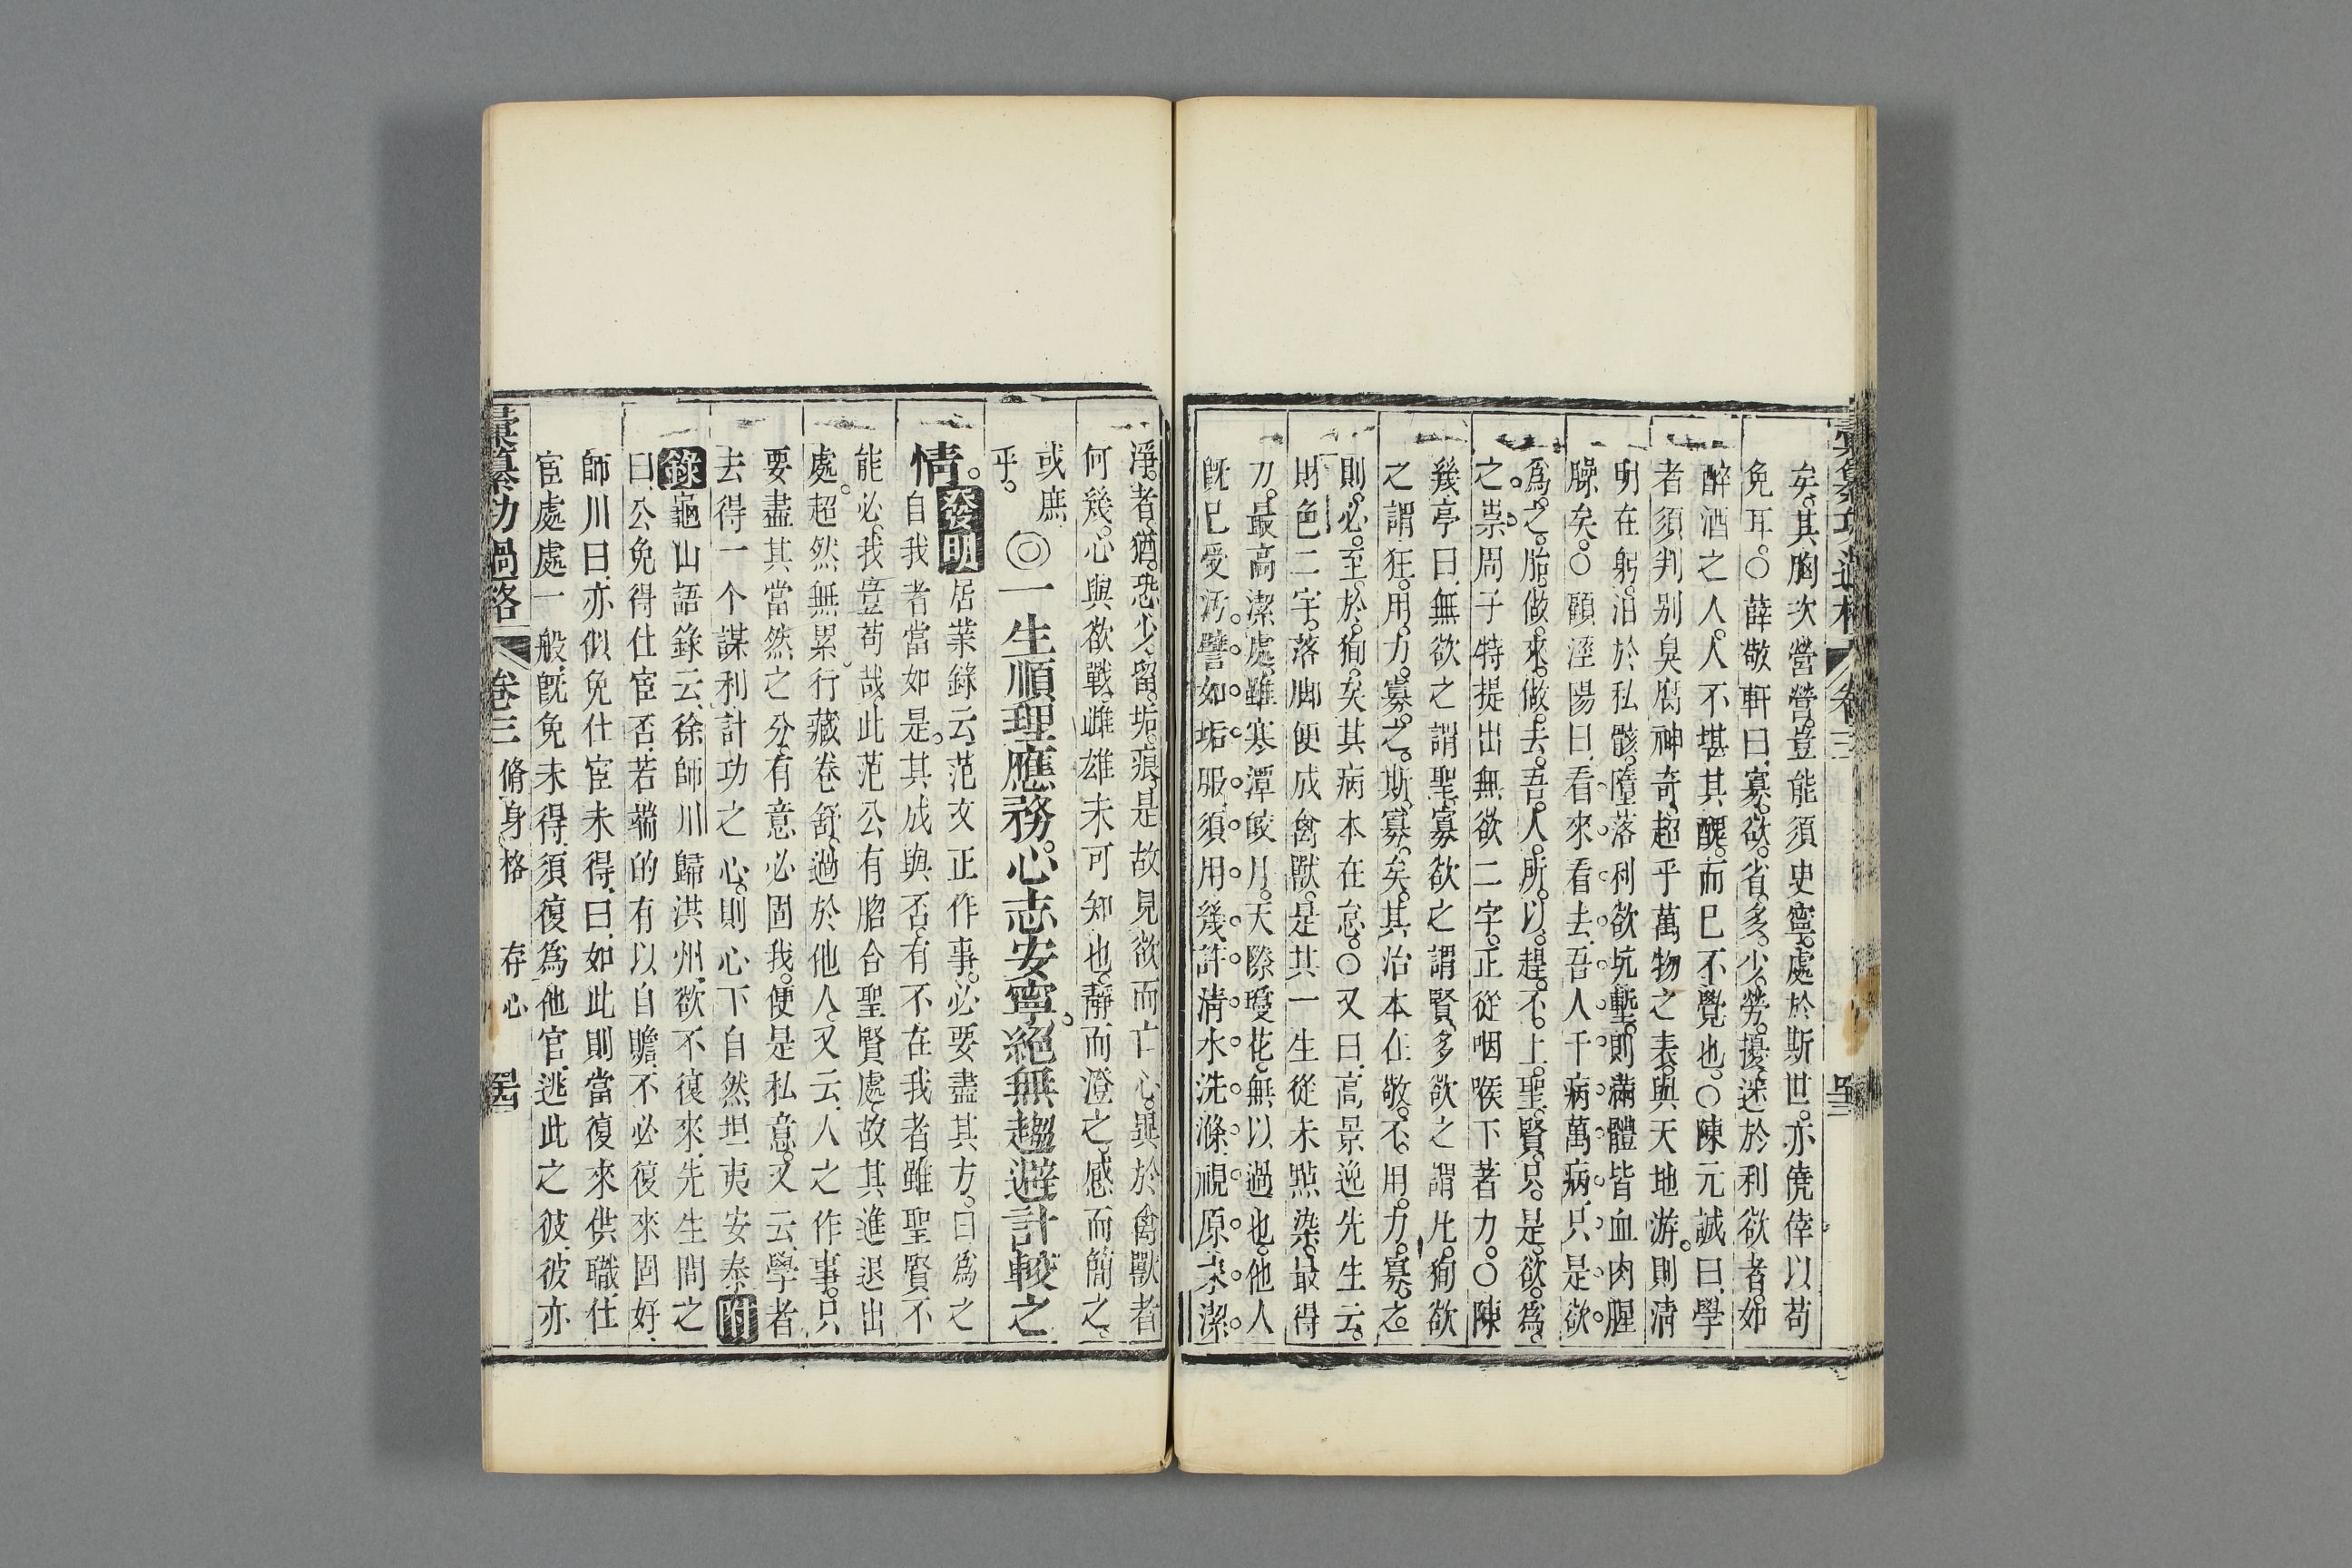 彙纂功過格 卷三 四三
矣。其胸次營營。豈能須臾寧。處於斯世。亦僥倖以苟
免耳。○薛敬軒曰。寡。欲。省。多。少。勞。擾。迷於利欲者。如
醉酒之人。人不堪其醜。而已不覺也。○陳元誠曰。學
者須判別臭腐神奇。超乎萬物之表。與天地游。則淸
明在躬。汨於私骸。墮落利欲坑塹。則滿體皆血肉腥
臊矣。○顧涇陽曰。看來看去。吾人千病萬病。只是欲
爲。之。胎。做。來。做。去。吾。人。所。以。趕。不。上。聖。賢。只。是。欲。爲。
之。祟。周子特提出無欲二字。正從咽喉下著力。○陳
幾亭曰。無欲之謂聖。寡欲之謂賢。多欲之謂凡。狥欲
之謂狂。用。力。寡。之。斯。寡。矣。其治本在敬。不。用。力。寡。之。
則。必。至。於。狥。矣其病本在怠。○又曰。高景逸先生云。
財色二字。落脚便成禽獸。是其一生從未點染。最得
力。最高潔處。雖寒潭皎月。天際瓊花。無以過也。他人
旣已受汚。譬如垢服。須用幾許淸水洗滌。視原來潔
淨。者。猶。恐。少。留。垢。痕。是故見欲而亡心。異於禽獸者
何幾。心與欲戰。雌雄未可知也。靜而澄之。感而簡之。
或庶
乎。 ◎一生順理應務。心志安寧。絕無趨避計較之
情。發明居業錄云。范文正作事。必要盡其方。曰爲之
自我者當如是。其成與否。有不在我者。雖聖賢不
能必。我豈苟哉。此范公有脗合聖賢處。故其進退出
處。超然無累。行藏卷舒。過於他人。又云。人之作事。只
要盡其當然之分。有意必固我。便是私意。又云。學者
去得一个謀利計功之心。則心下自然坦夷安泰。附
錄龜山語錄云。徐師川歸洪州。欲不復來。先生問之
曰。公免得仕宦否。若端的有以自贍。不必復來固好。
師川曰。亦似免仕宦未得。曰。如此則當復來供職。仕
宦處處一般。旣免未得。須復爲他官。逃此之彼。彼亦
彙纂功過格 卷三 脩身格 存心 四四